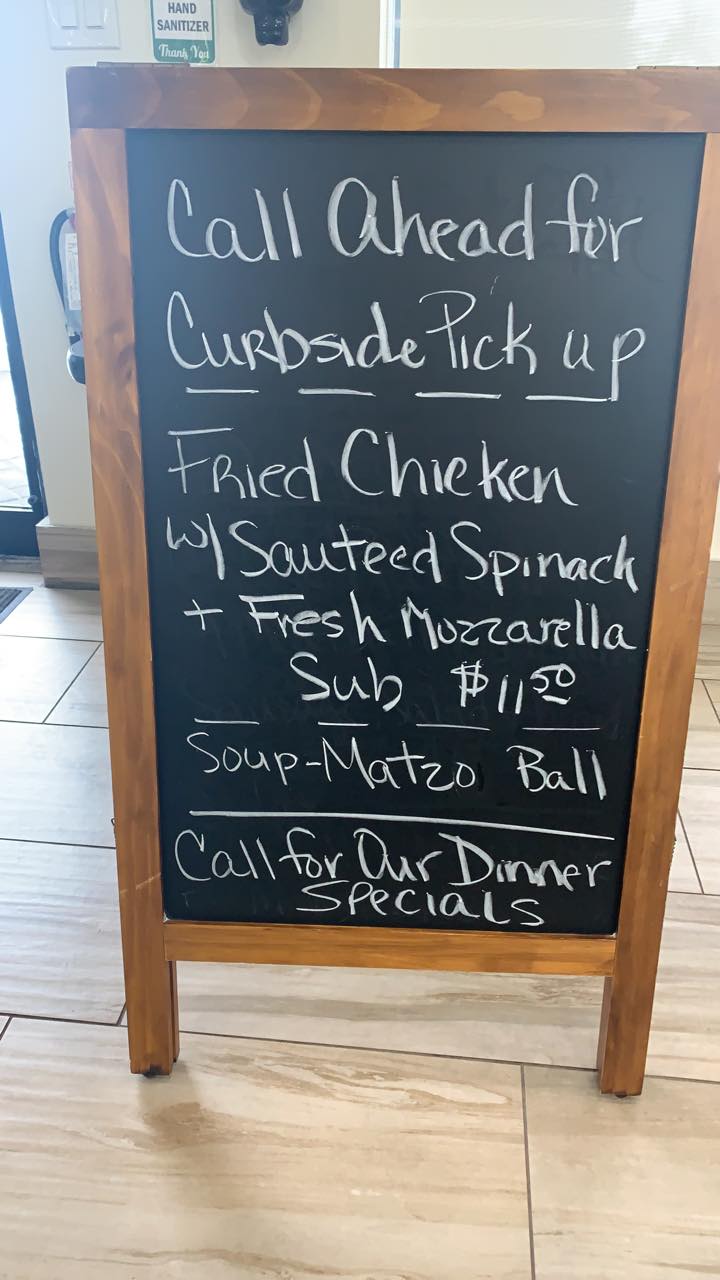 HAND
SANITIZER
Thank You
Call Ahead for
Curbside Pick up
Fried Chicken
w/ Sauteed Spinach
+ Fresh Mozzarella
Sub $11.50
Soup-Matzo Ball
Call for Our Dinner
Specials